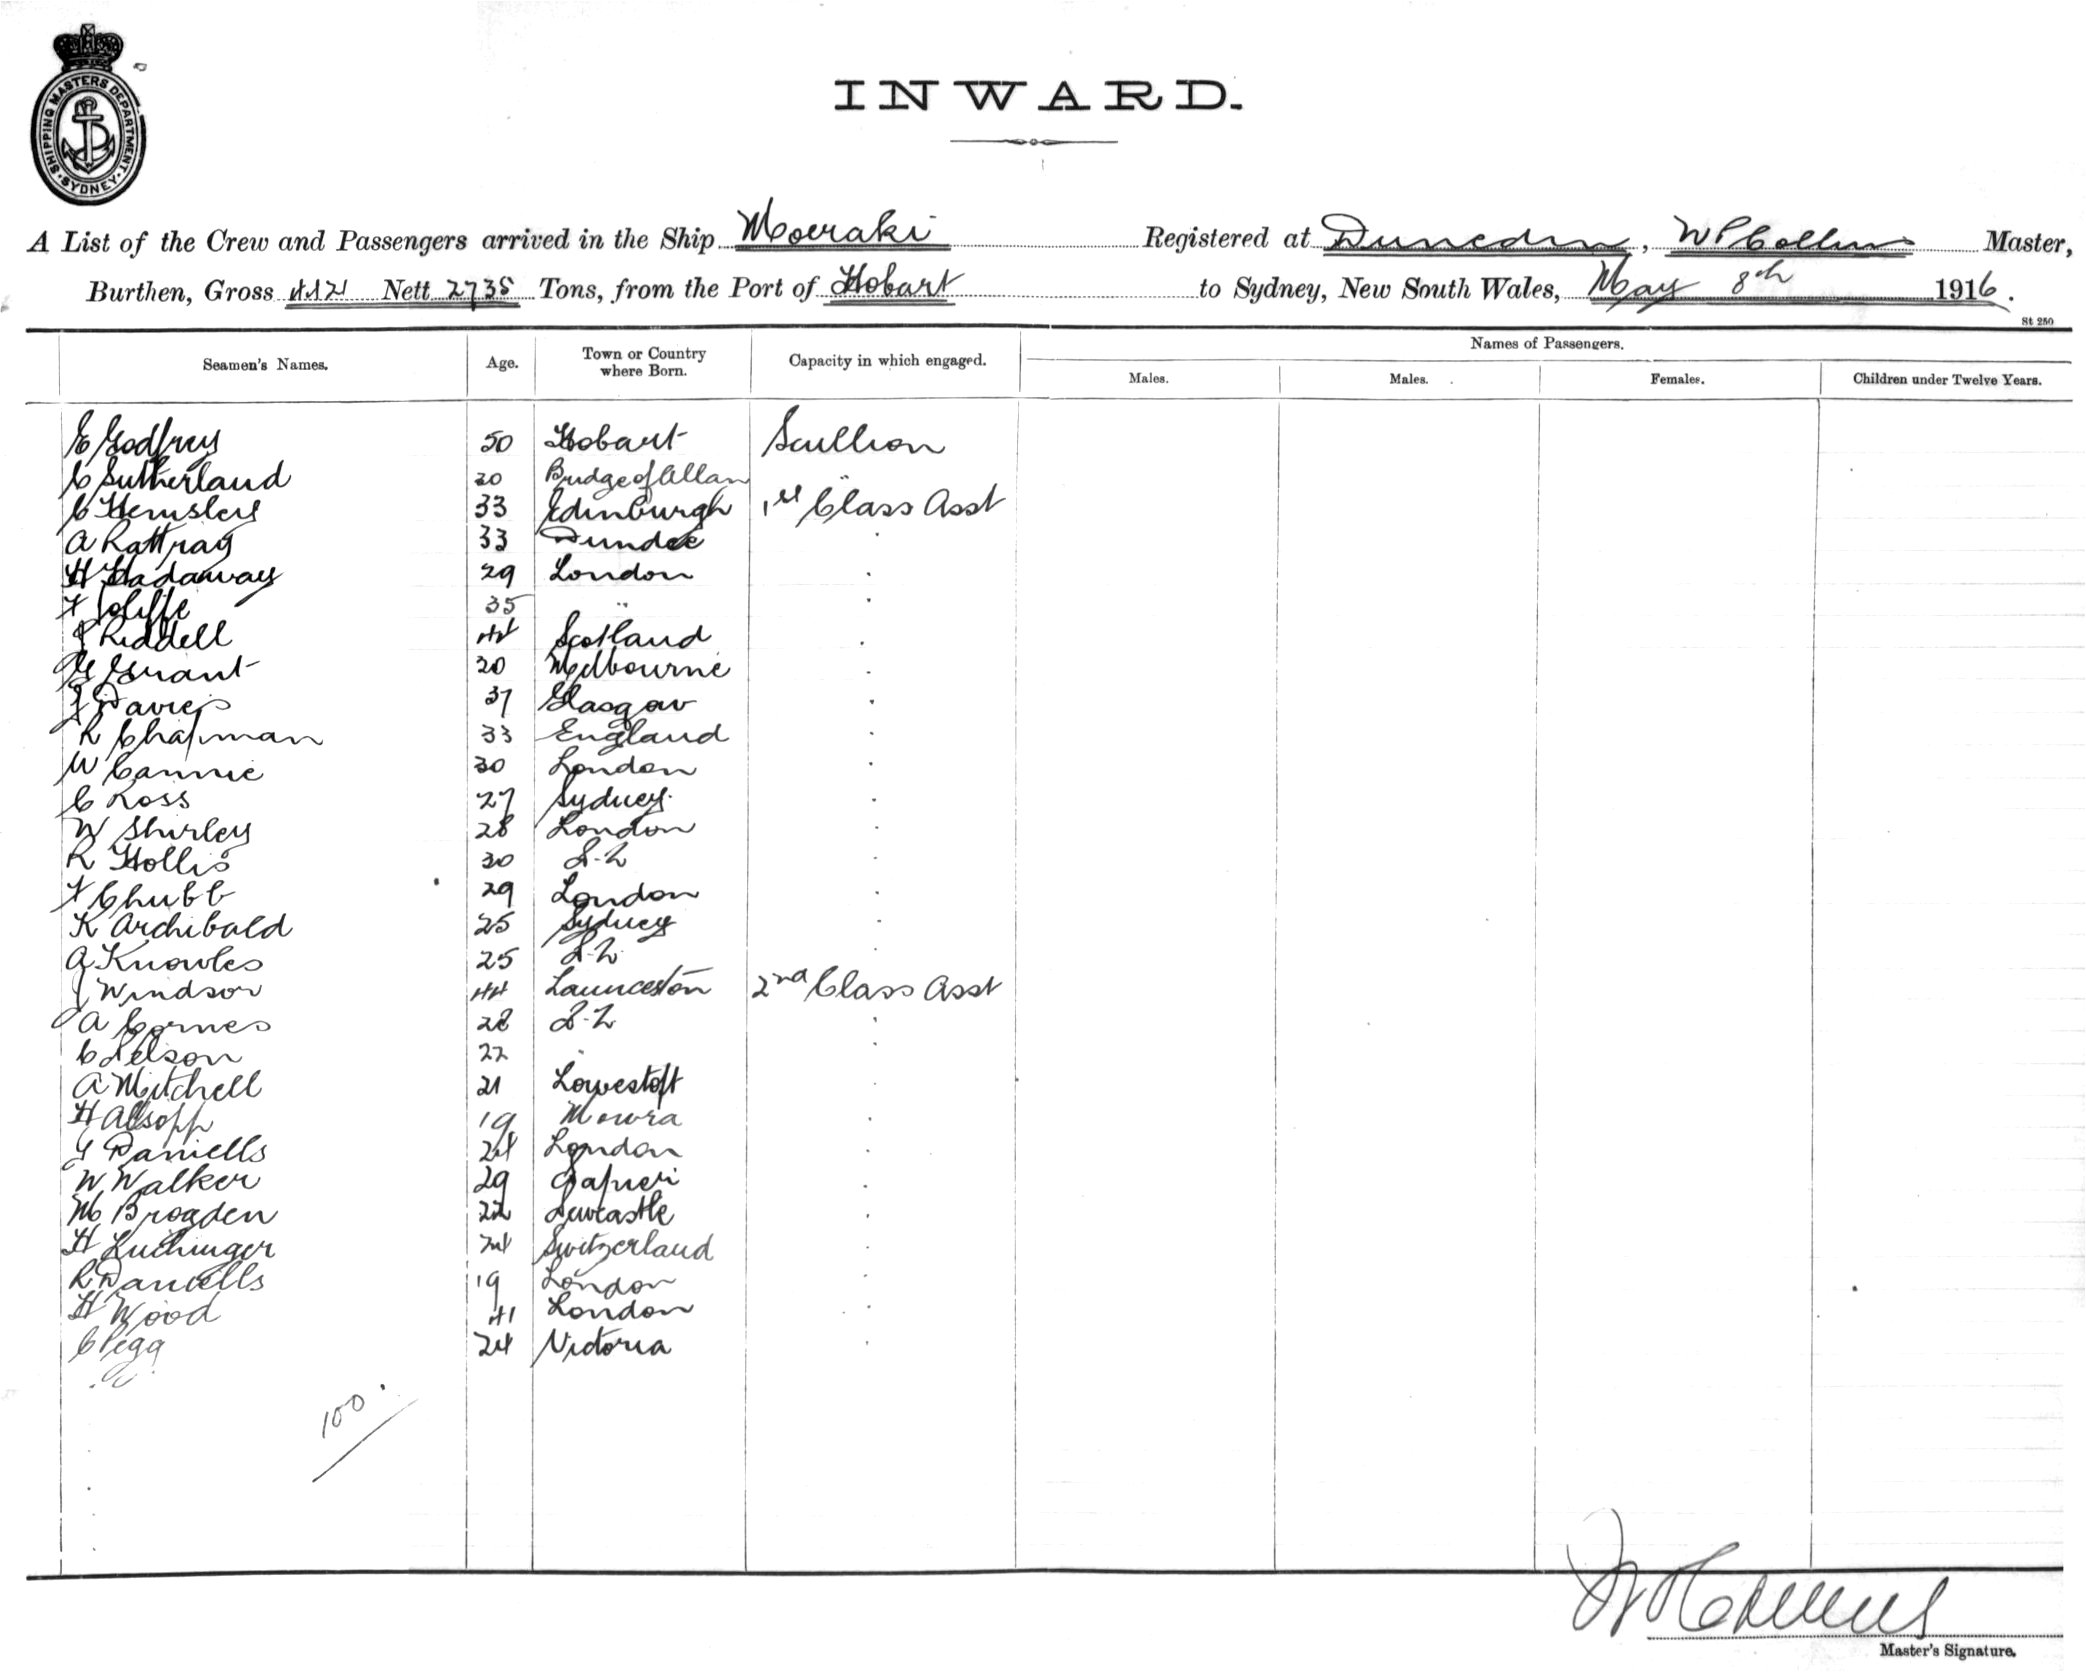 SHIPPING MASTERS DEPARTMENT
SYDNEY
INWARD.
A List of the Crew and Passengers arrived in the Ship Moeraki Registered at Dunedin, W P Collins Master,
Burthen, Gross 4421 Nett 2735 Tons, from the Port of Hobart to Sydney, New South Wales, May 8th 1916.
St 250
Seamen's Names. Age. Town or Country where Born. Capacity in which engaged. Names of Passengers.
Males. Males. Females. Children under Twelve Years.
E Godfrey 50 Hobart Scullion
C Sutherland 30 Bridge of Allan "
C Hemsley 33 Edinburgh 1st Class Asst
A Rattray 33 Dundee
H Hadaway 29 London
F Joliffe 35 "
J Riddell 44 Scotland
G Grant 20 Melbourne
J Davies 37 Glasgow
R Chapman 33 England
W Cannie 30 London
C Ross 27 Sydney
W Shirley 28 London
R Hollis 30 N.Z
F Chubb 29 London
K Archibald 25 Sydney
A Knowles 25 N.Z
J Windsor 44 Launceston 2nd Class Asst
A Cornes 28 N.Z
C Nelson 22 "
A Mitchell 21 Lowestoft
H Allsopp 19 Mowra
G Daniells 24 London
W Walker 29 Napier
M Brogden 22 Newcastle
H Luchinger 24 Switzerland
R Daniells 19 London
H Wood 41 London
C Pegg 24 Victoria
100.
W P Collins
Master's Signature.